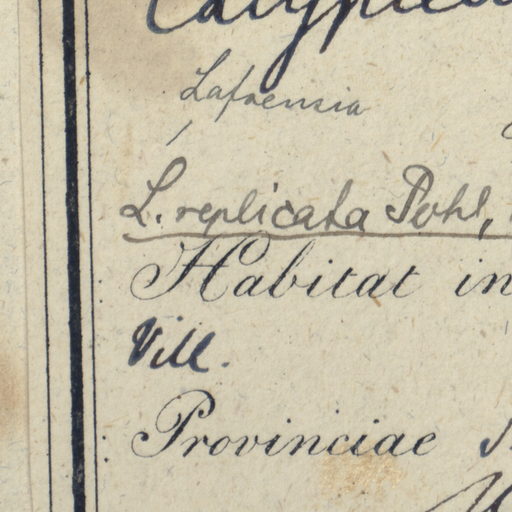 Lafoensia
L. replicata Pohl,
Habitat in
Vill.
Provinciae